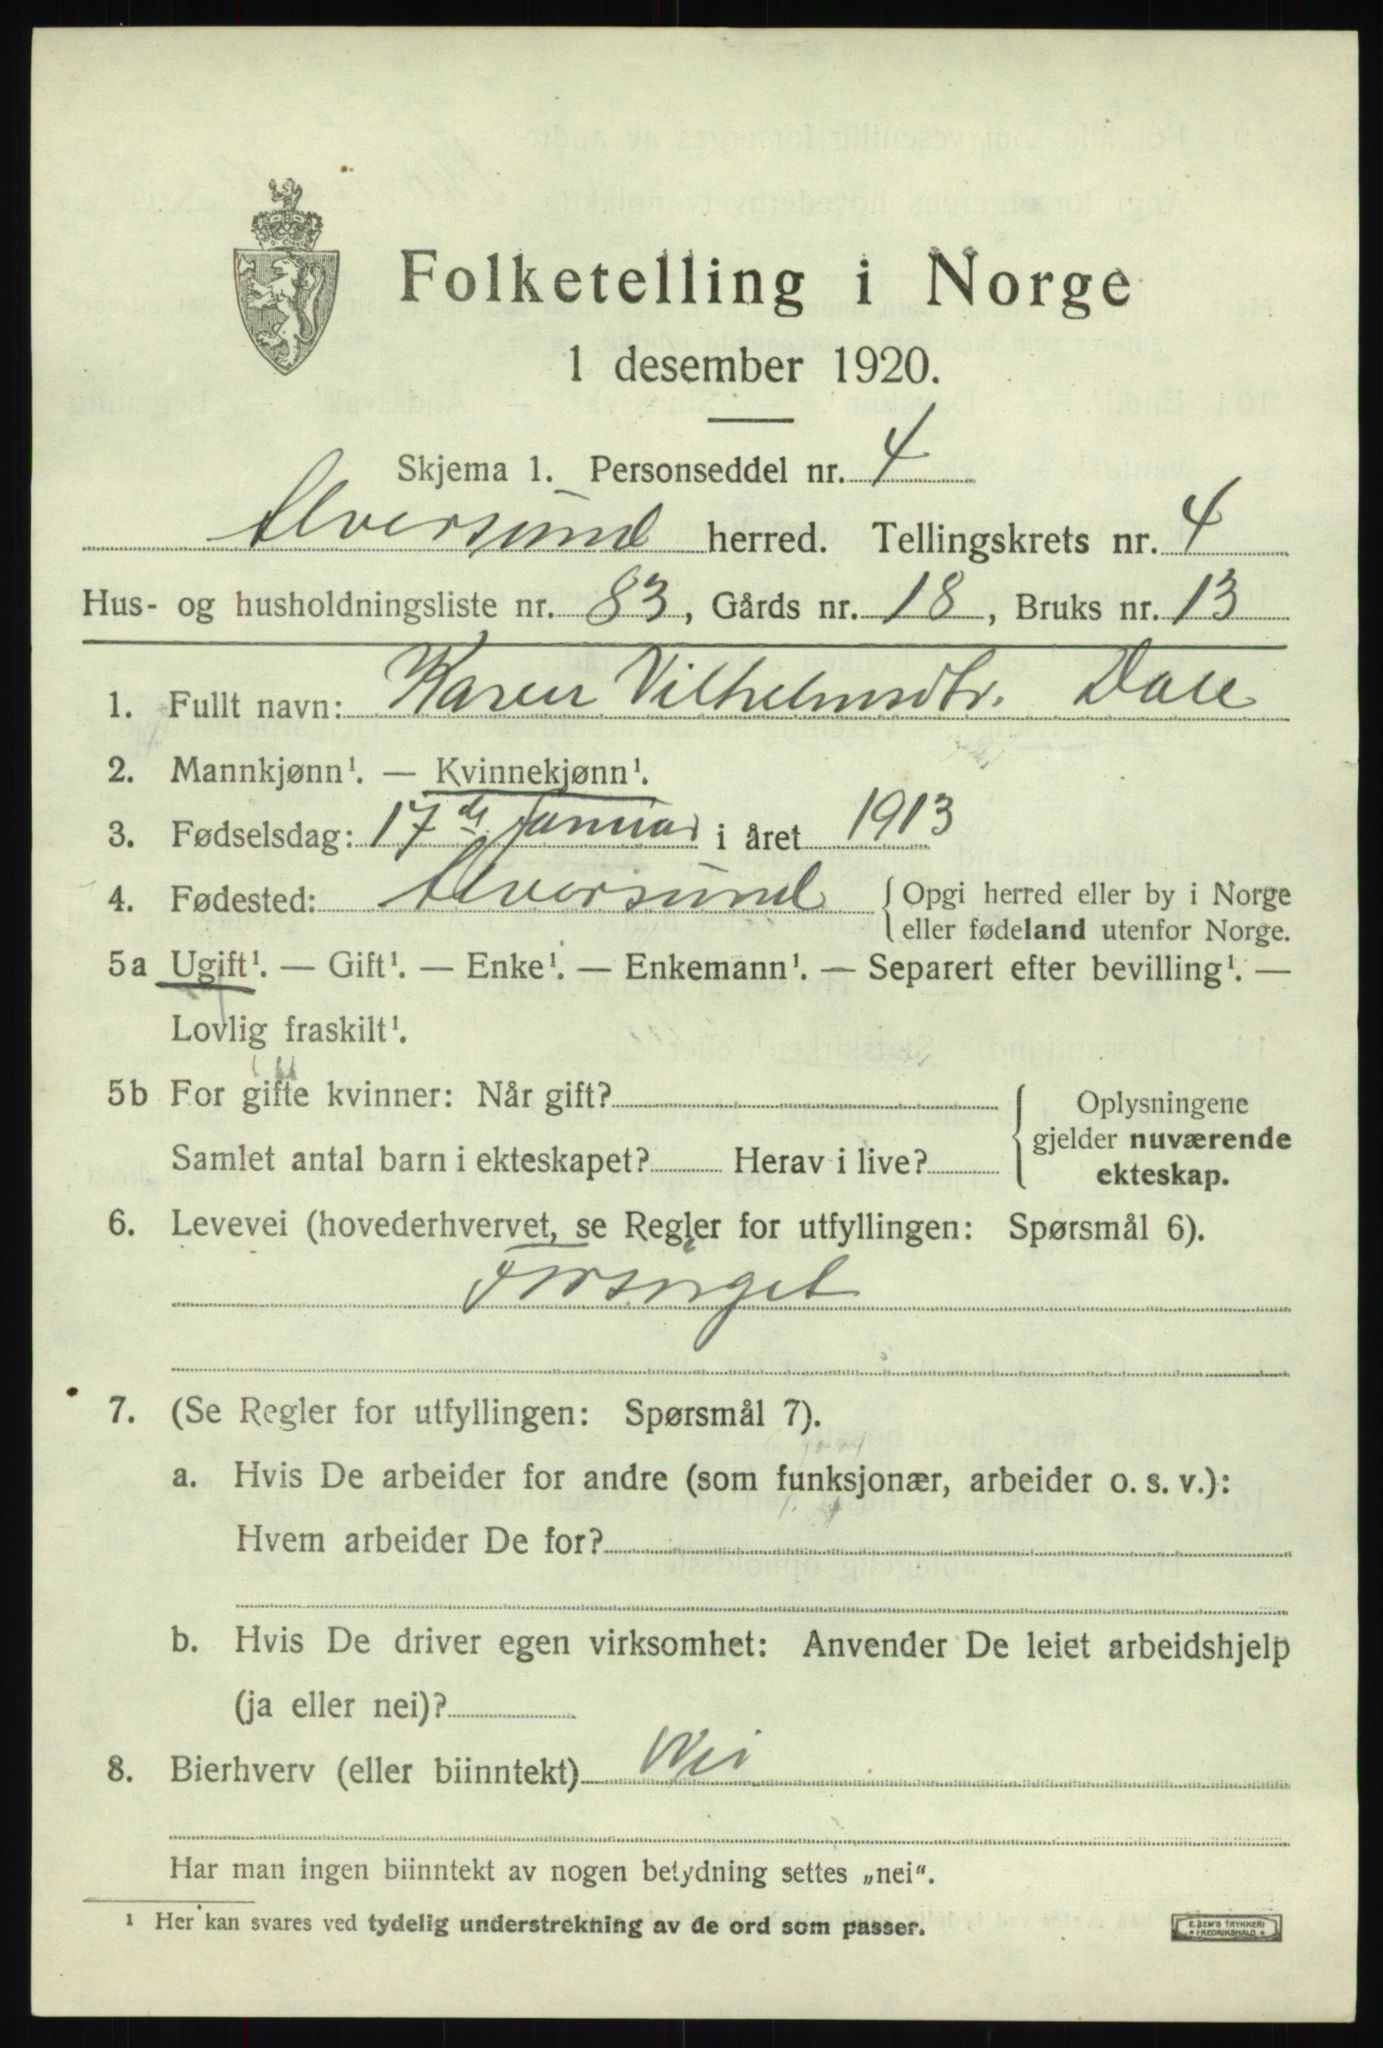 Folketelling i Norge
1 desember 1920.
Skjema 1. Personseddel nr. 4
Alversund herred. Tellingskrets nr. 4
Hus- og husholdningsliste nr. 83, Gårds nr. 18, Bruks nr. 13
1. Fullt navn: Karen Vilhelmsdtr. Dale
2. Mannkjønn¹. — Kvinnekjønn¹.
3. Fødselsdag: 17de Januar i året 1913
4. Fødested: Alversund { Opgi herred eller by i Norge
eller fødeland utenfor Norge.
5a Ugift¹. — Gift¹. — Enke¹. — Enkemann¹. — Separert efter bevilling¹. —
Lovlig fraskilt¹.
5b For gifte kvinner: Når gift? { Oplysningene
gjelder nuværende
Samlet antal barn i ekteskapet? Herav i live?
ekteskap.
6. Levevei (hovederhvervet, se Regler for utfyllingen: Spørsmål 6).
Forsørget
7. (Se Regler for utfyllingen: Spørsmål 7).
a. Hvis De arbeider for andre (som funksjonær, arbeider o. s. v.):
Hvem arbeider De for?
b. Hvis De driver egen virksomhet: Anvender De leiet arbeidshjelp
(ja eller nei)?
8. Bierhverv (eller biinntekt) Nei
Har man ingen biinntekt av nogen betydning settes „nei“.
¹ Her kan svares ved tydelig understrekning av de ord som passer.
E. SEM'S TRYKKERI
* FREDRIKSHALD *